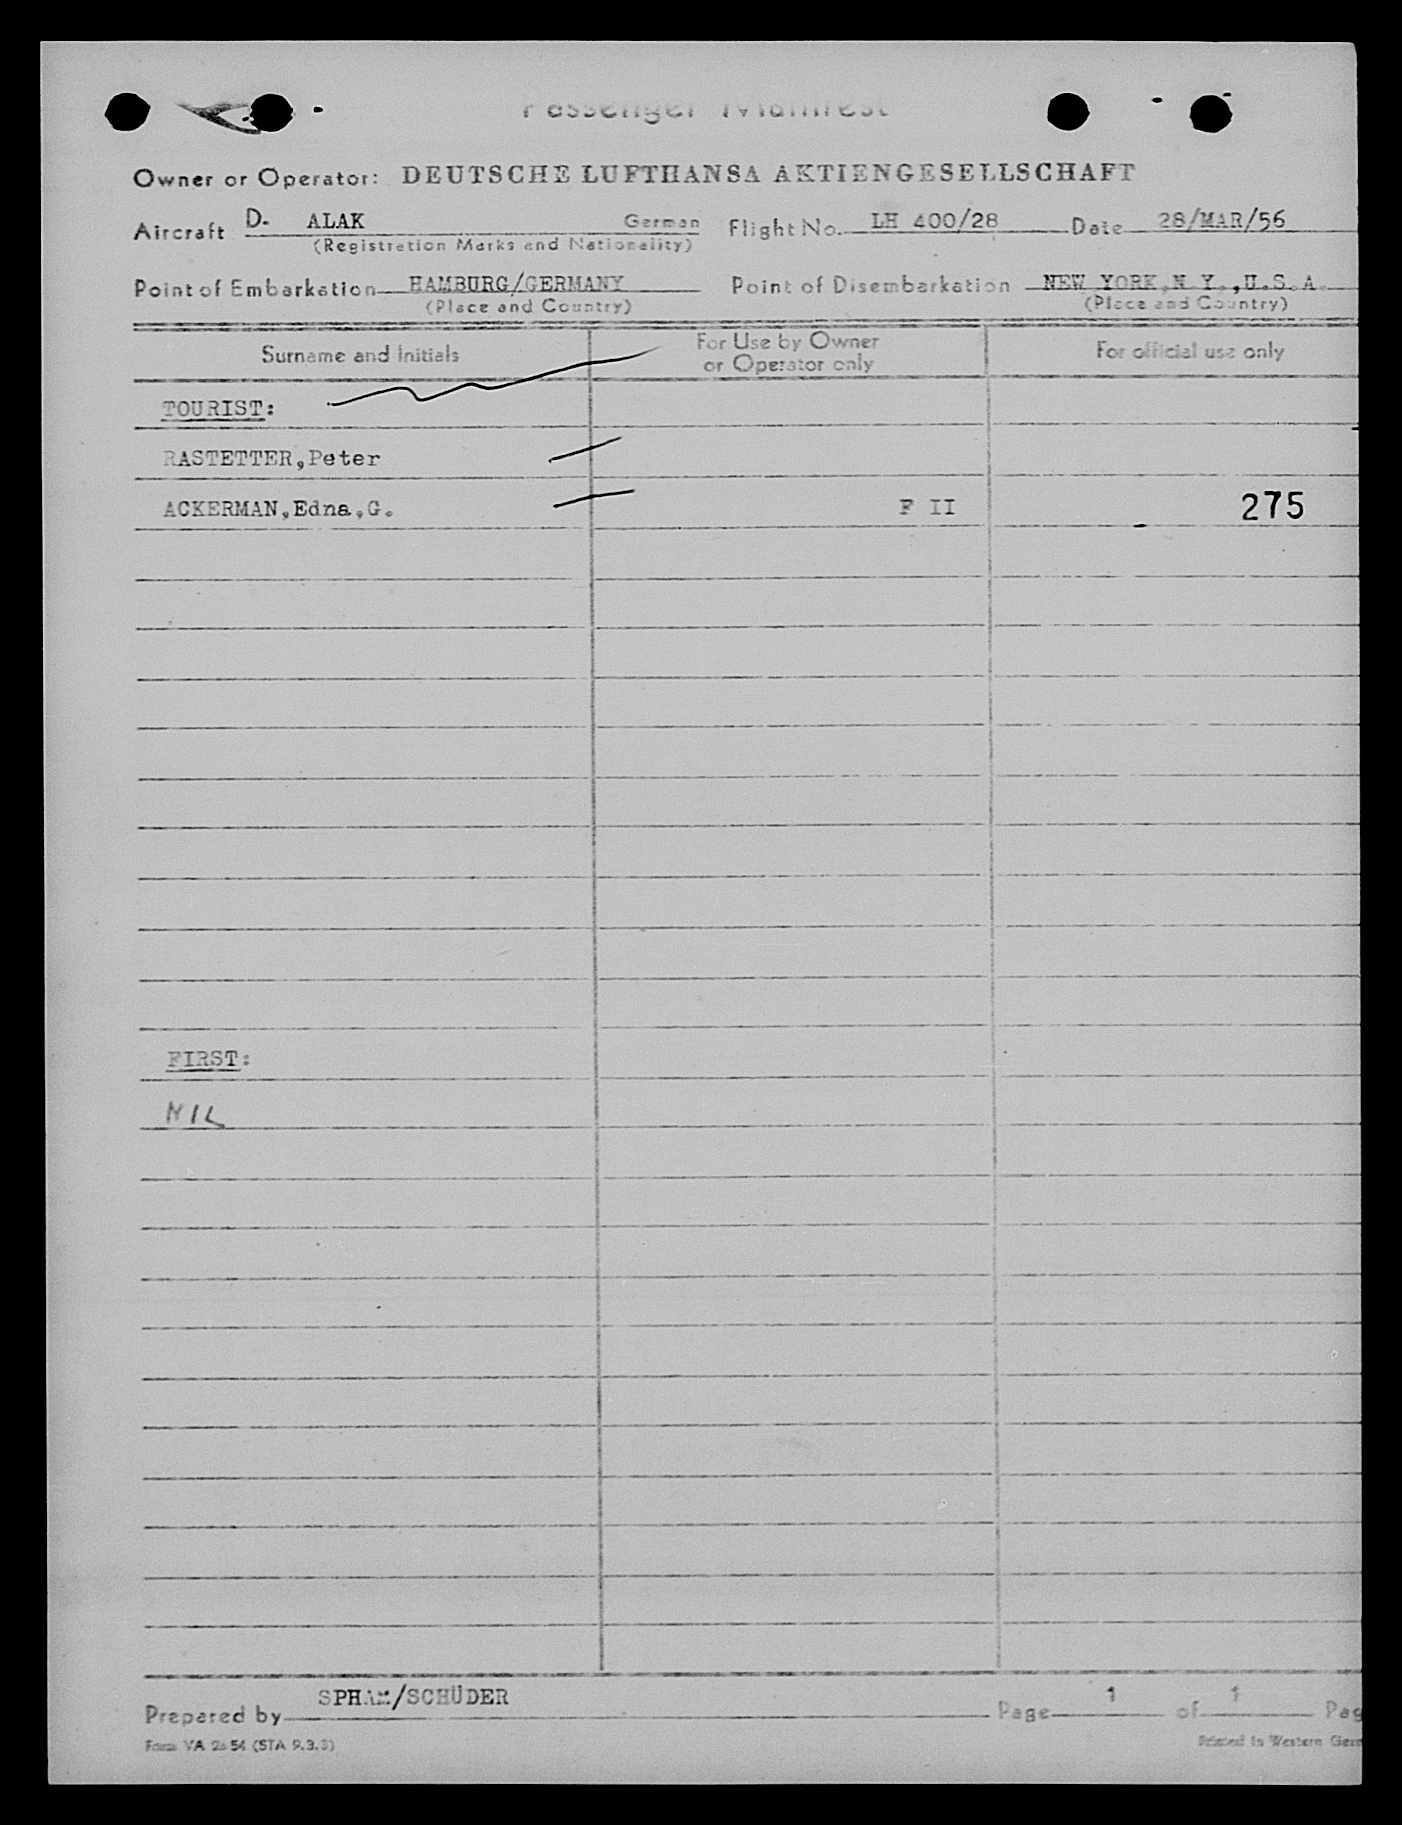 Passenger Manifest
Owner or Operator: DEUTSCHE LUFTHANSA AKTIENGESELLSCHAFT
Aircraft D- ALAK German Flight No. LH 400/28 Date 28/MAR/56
(Registration Marks and Nationality)
Point of Embarkation HAMBURG/GERMANY Point of Disembarkation NEW YORK,N.Y.,U.S.A.
(Place and Country) (Place and Country)
Surname and Initials For Use by Owner or Operator only For official use only
TOURIST:
RASTETTER,Peter
ACKERMAN,Edna,G. F II 275
FIRST:
NIL
Prepared by SPHAM/SCHÜDER Page 1 of 1 Pag
Form VA 2654 (STA 9.3.5)
Printed in Western Germ